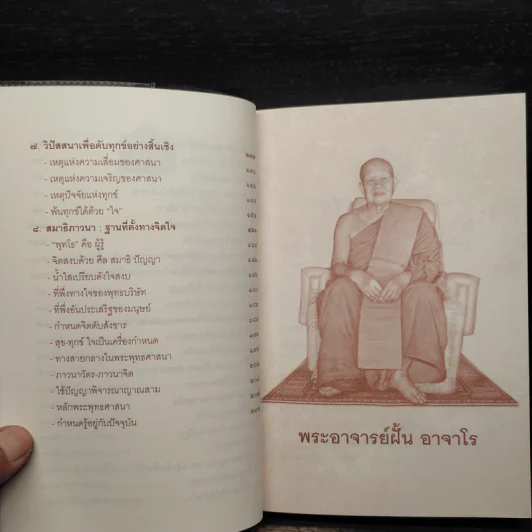 ๗. วิปัสสนาเพื่อดับทุกข์อย่างสิ้นเชิง
- เหตุแห่งความเสื่อมของศาสนา
- เหตุแห่งความเจริญของศาสนา
- เหตุปัจจัยแห่งทุกข์
- พ้นทุกข์ได้ด้วย "ใจ"
๘. สมาธิภาวนา : ฐานที่ตั้งทางจิตใจ
- "พุทโธ" คือ ผู้รู้
- จิตสงบด้วย ศีล สมาธิ ปัญญา
- น้ำใสเปรียบดังใจสงบ
- ที่พึ่งทางใจของพุทธบริษัท
- ที่พึ่งอันประเสริฐของมนุษย์
- กำหนดจิตดับสังขาร
- สุข-ทุกข์ ใจเป็นเครื่องกำหนด
- ทางสายกลางในพระพุทธศาสนา
- ภาวนาวัตร-ภาวนาจิต
- ใช้ปัญญาพิจารณาญาณสาม
- หลักพระพุทธศาสนา
- กำหนดรู้อยู่กับปัจจุบัน
พระอาจารย์ฝั้น อาจาโร